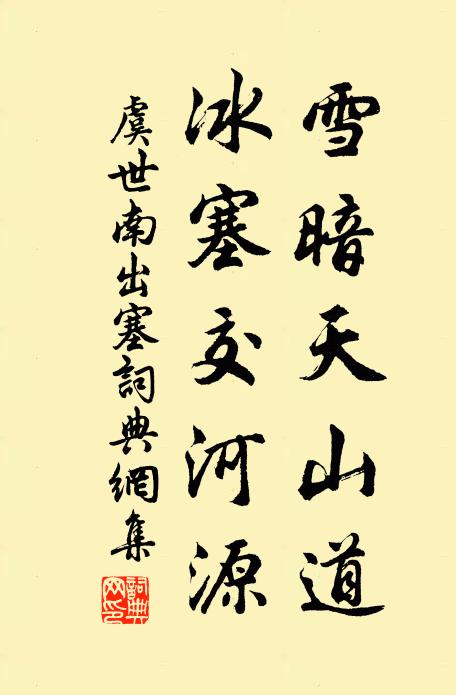 雪暗天山道
冰塞交河源
虞世南出塞詞典網集
詞典網印